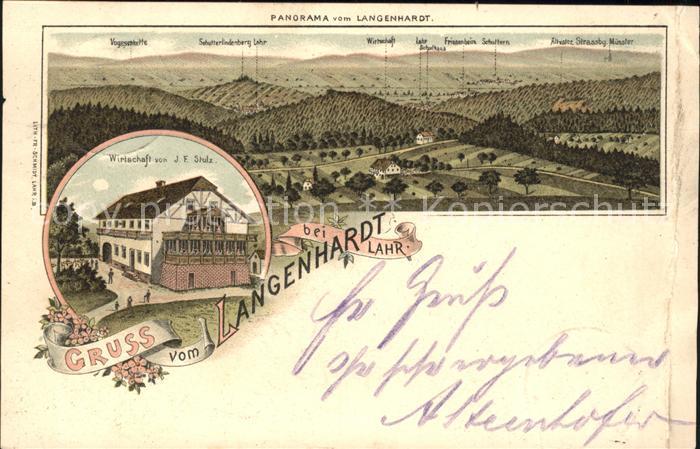 PANORAMA vom LANGENHARDT.
Vogesenkette Schutterlindenberg Lahr Wirtschaft Lahr Schulhaus Friesenheim Schuttern Altvater Strassbg. Münster
LITH. FR. SCHMIDT, LAHR i/B.
Wirtschaft von J. F. Stulz.
GRUSS vom LANGENHARDT bei LAHR.
Gruß
ergebener
copyright